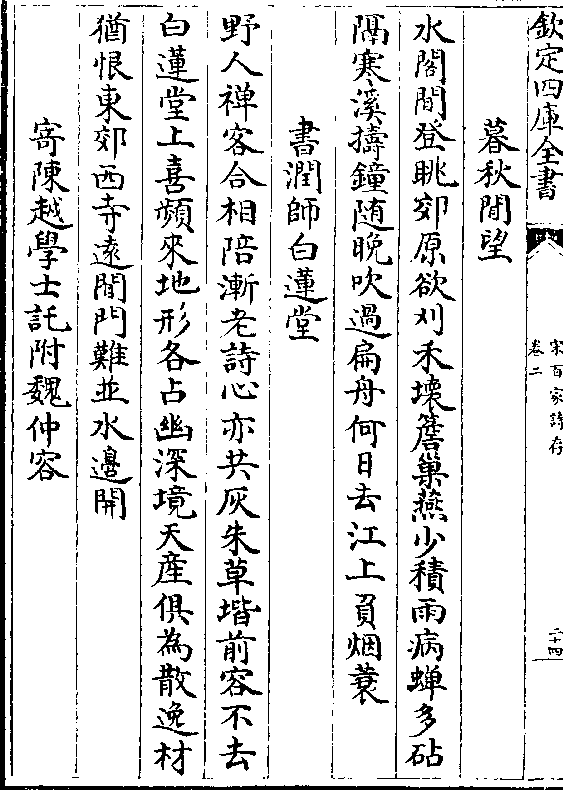 欽定四庫全書
宋百家詩存
卷二
二十四
暮秋閒望
水閣閒登眺郊原欲刈禾壞簷巢燕少積雨病蟬多砧
隔寒溪擣鐘随晚吹過扁舟何日去江上負烟蓑
書潤師白蓮堂
野人禅客合相陪漸老詩心亦共灰朱草堦前容不去
白蓮堂上喜頻來地形各占幽深境天産俱為散逸材
猶恨東郊西寺遠閒門難並水邉開
寄陳越學士託附魏仲容